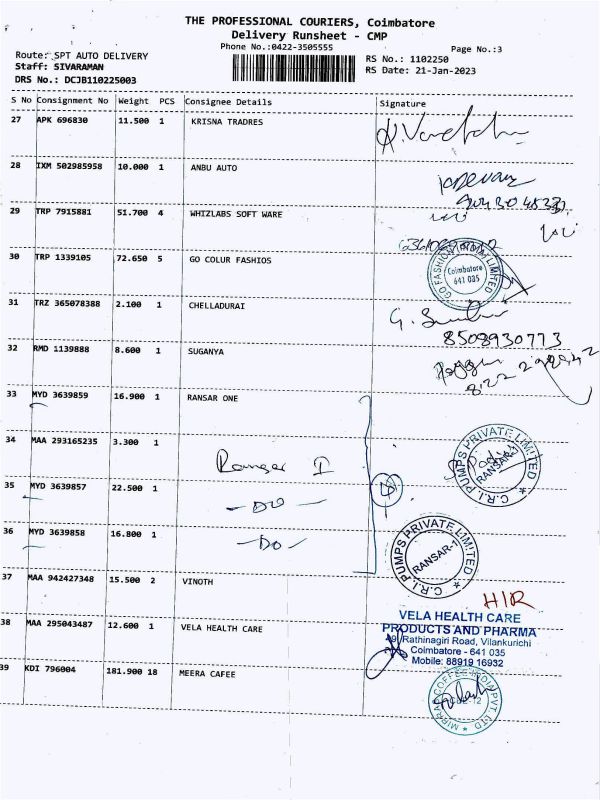 THE PROFESSIONAL COURIERS, Coimbatore
Delivery Runsheet - CMP
Phone No.:0422-3505555
Page No.:3
Route: SPT AUTO DELIVERY
Staff: SIVARAMAN
DRS No.: DCJB110225003
RS No.: 1102250
RS Date: 21-Jan-2023
S No Consignment No Weight PCS Consignee Details Signature
27 APK 696830 11.500 1 KRISNA TRADRES
28 IXM 502985958 10.000 1 ANBU AUTO
29 TRP 7915881 51.700 4 WHIZLABS SOFT WARE
30 TRP 1339105 72.650 5 GO COLUR FASHIOS
GO FASHION INDIA LIMITED
Coimbatore
641 035
31 TRZ 365078388 2.100 1 CHELLADURAI
8508930773
32 RMD 1139888 8.600 1 SUGANYA
33 MYD 3639859 16.900 1 RANSAR ONE
34 MAA 293165235 3.300 1 Ransar I
C.R.I PUMPS PRIVATE LIMITED
RANSAR-1
35 MYD 3639857 22.500 1 - DO -
36 MYD 3639858 16.800 1 - DO -
C.R.I PUMPS PRIVATE LIMITED
RANSAR-1
37 MAA 942427348 15.500 2 VINOTH
H/R
38 MAA 295043487 12.600 1 VELA HEALTH CARE
VELA HEALTH CARE
PRODUCTS AND PHARMA
Rathinagiri Road, Vilankurichi
Coimbatore - 641 035
Mobile: 88919 16932
39 KDI 796004 181.900 18 MEERA CAFEE